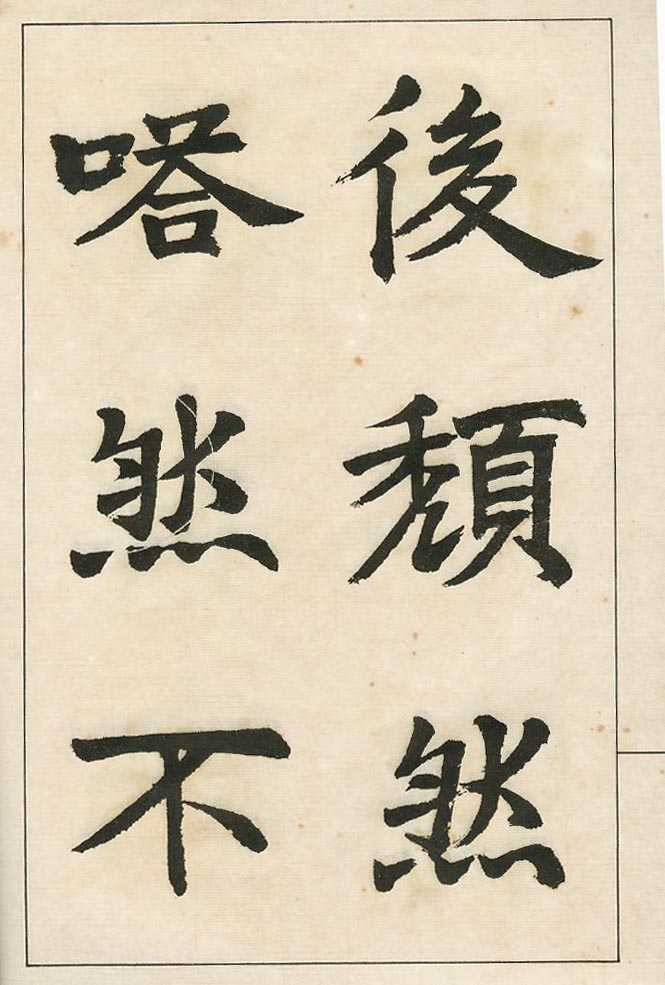 後頹然
嗒然不